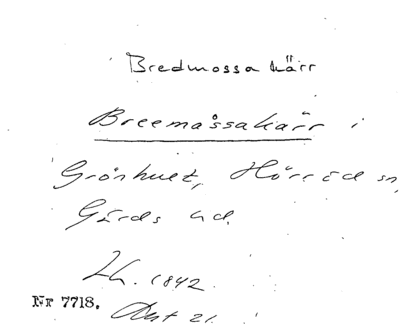 Bredmossa kärr
Breemåssakärr i
Grönhult, Hörröd sn,
Gärds hd.
Lh. 1842.
Nr 7718.
Akt 21.